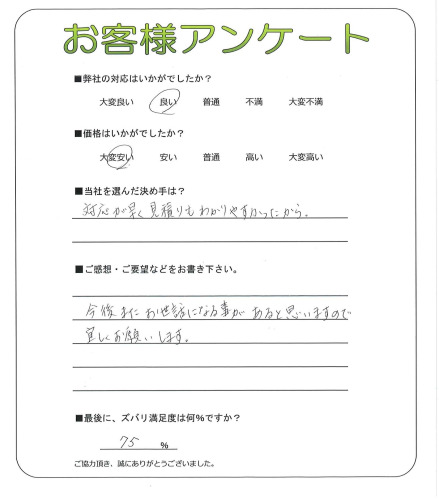 お客様アンケート
■弊社の対応はいかがでしたか？
大変良い 良い 普通 不満 大変不満
■価格はいかがでしたか？
大変安い 安い 普通 高い 大変高い
■当社を選んだ決め手は？
対応が早く見積りもわかりやすかったから。
■ご感想・ご要望などをお書き下さい。
今後またお世話になる事があると思いますので
宜しくお願いします。
■最後に、ズバリ満足度は何%ですか？
75 %
ご協力頂き、誠にありがとうございました。